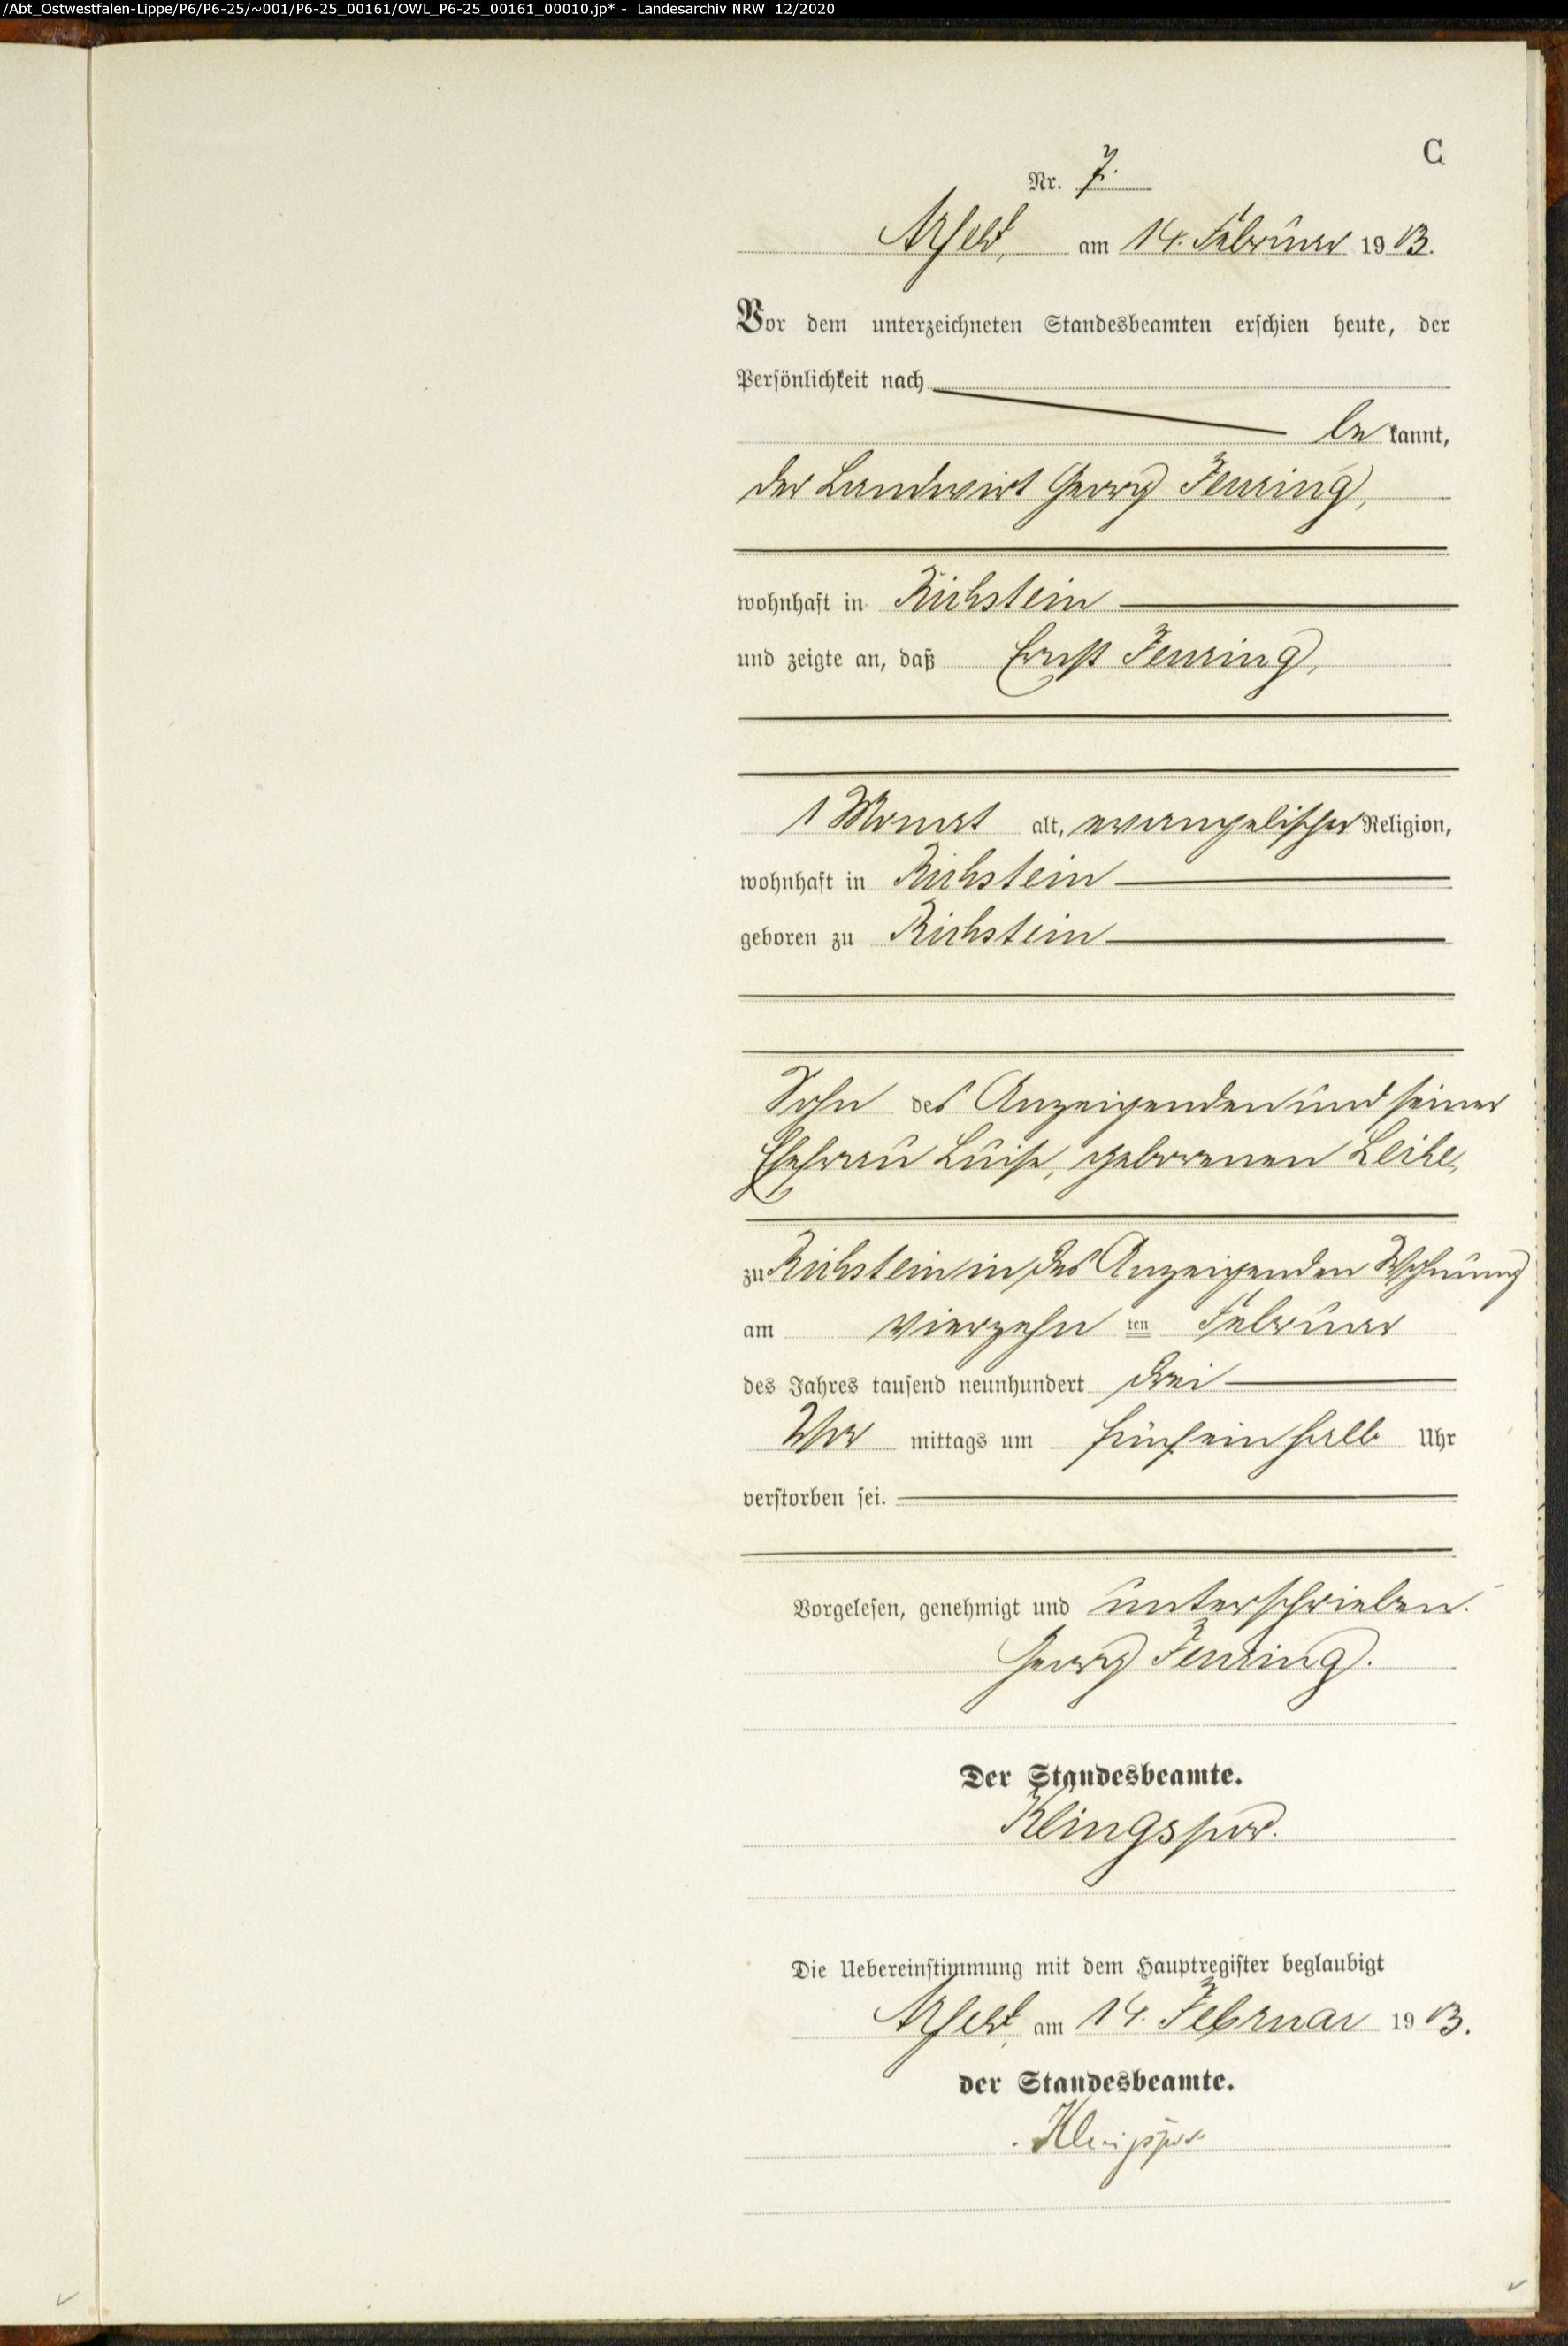 /Abt_Ostwestfalen-Lippe/P6/P6-25/~001/P6-25_00161/OWL_P6-25_00161_00010.jp* - Landesarchiv NRW 12/2020
C
Nr. 7.
Arfeld, am 14. Februar 1903.
Vor dem unterzeichneten Standesbeamten erschien heute, der
Persönlichkeit nach
bekannt,
der Landwirt Georg Feuring,
wohnhaft in Richstein
und zeigte an, daß Ernst Feuring,
1 Monat alt, evangelischer Religion,
wohnhaft in Richstein
geboren zu Richstein
Sohn des Anzeigenden und seiner
Ehefrau Luise, geborenen
zu Richstein in des Anzeigenden Wohnung
am vierzehnten Februar
des Jahres tausend neunhundert drei
Vormittags um fünfeinhalb Uhr
verstorben sei.
Vorgelesen, genehmigt und unterschrieben.
Georg Feuring.
Der Standesbeamte.
Klingspor.
Die Uebereinstimmung mit dem Hauptregister beglaubigt
Arfeld, am 14. Februar 1903.
der Standesbeamte.
Klingspor